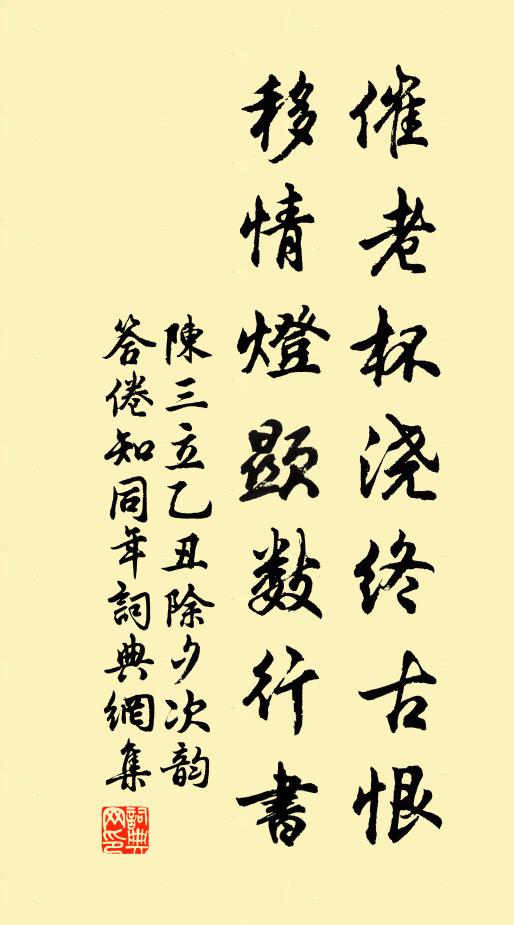 催老杯浇终古恨
移情燈显數行書
陳三立乙丑除夕次韵
答倦知同年詞典網集
詞典
网印